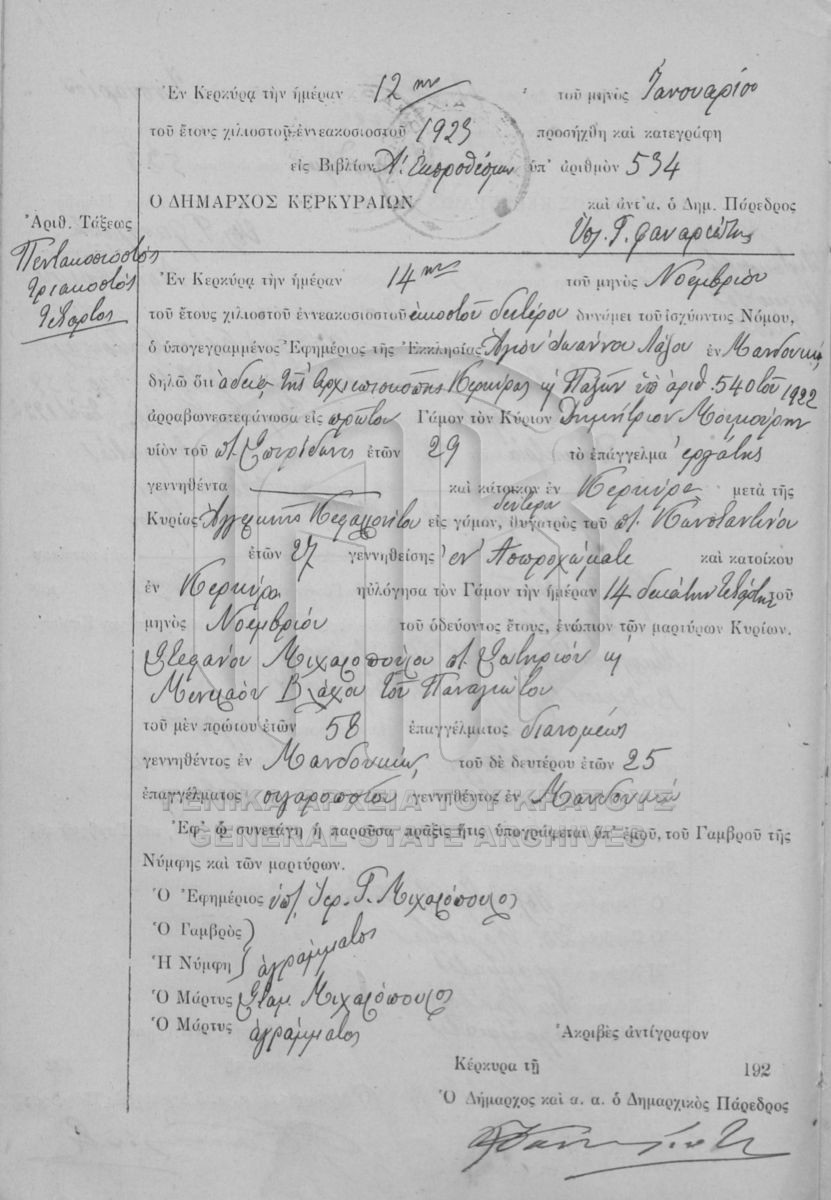 Ἐν Κερκύρᾳ τὴν ἡμέραν 12ην τοῦ μηνὸς Ἰανουαρίου
τοῦ ἔτους χιλιοστοῦ ἐννεακοσιοστοῦ 1923 προσήχθη καὶ κατεγράφη
εἰς Βιβλίον Λ. Ἐκπροθέσμων ὑπ' ἀριθμὸν 534
Ο ΔΗΜΑΡΧΟΣ ΚΕΡΚΥΡΑΙΩΝ καὶ ἀντ' α. ὁ Δημ. Πάρεδρος
Ἀριθ. Τάξεως
Ὑπ. Γ. Φαναριώτης
Πεντακοσιοστὸς
τριακοστὸς
τέταρτος
Ἐν Κερκύρᾳ τὴν ἡμέραν 14ην τοῦ μηνὸς Νοεμβρίου
τοῦ ἔτους χιλιοστοῦ ἐννεακοσιοστοῦ εἰκοστοῦ δευτέρου δυνάμει τοῦ ἰσχύοντος Νόμου,
ὁ ὑπογεγραμμένος Ἐφημέριος τῆς Ἐκκλησίας Ἁγίου Ἰωάννου Λάζου ἐν Μανδουκίῳ
δηλῶ ὅτι ἀδείᾳ τῆς Ἀρχιεπισκοπῆς Κερκύρας κ Παξῶν ὑπ ἀριθ. 540 τοῦ 1922
ἀρραβωνεστεφάνωσα εἰς πρῶτον Γάμον τὸν Κύριον Δημήτριον Μουμούρην
υἱὸν τοῦ π. Σπυρίδωνος ἐτῶν 29 τὸ ἐπάγγελμα ἐργάτης
γεννηθέντα καὶ κάτοικον ἐν Κερκύρᾳ μετὰ τῆς
δεύτερον
Κυρίας Ἀγγελικῆς Κεφαλλονίτου εἰς γάμον, θυγατρὸς τοῦ π. Κωνσταντίνου
ἐτῶν 27 γεννηθείσης ἐν Ἀσπροχώματι καὶ κατοίκου
ἐν Κερκύρᾳ ηὐλόγησα τὸν Γάμον τὴν ἡμέραν 14 δεκάτην τετάρτην τοῦ
μηνὸς Νοεμβρίου τοῦ ὁδεύοντος ἔτους, ἐνώπιον τῶν μαρτύρων Κυρίων.
Στεφάνου Μιχαλοπούλου π. Σωτηρίου κ
Μενελάου Βλάχου τοῦ Παναγιώτου
τοῦ μὲν πρώτου ἐτῶν 58 ἐπαγγέλματος διανομέως
γεννηθέντος ἐν Μανδουκίῳ τοῦ δὲ δευτέρου ἐτῶν 25
ἐπαγγέλματος σιγαροποιοῦ γεννηθέντος ἐν Μανδουκίῳ
ΓΕΝΙΚΑ ΑΡΧΕΙΑ ΤΟΥ ΚΡΑΤΟΥΣ
Ἐφ' ᾧ συνετάγη ἡ παροῦσα πρᾶξις ἥτις ὑπογράφεται ὑπ' ἐμοῦ, τοῦ Γαμβροῦ τῆς
GENERAL STATE ARCHIVES
Νύμφης καὶ τῶν μαρτύρων.
Ὁ Ἐφημέριος ὑπ. Ἱερ. Γ. Μιχαλόπουλος
Ὁ Γαμβρὸς
Ἡ Νύμφη ἀγράμματος
Ὁ Μάρτυς Σταμ. Μιχαλόπουλος
Ὁ Μάρτυς ἀγράμματος
Ἀκριβὲς ἀντίγραφον
Κέρκυρα τῇ 192
Ὁ Δήμαρχος καὶ α. α. ὁ Δημαρχικὸς Πάρεδρος